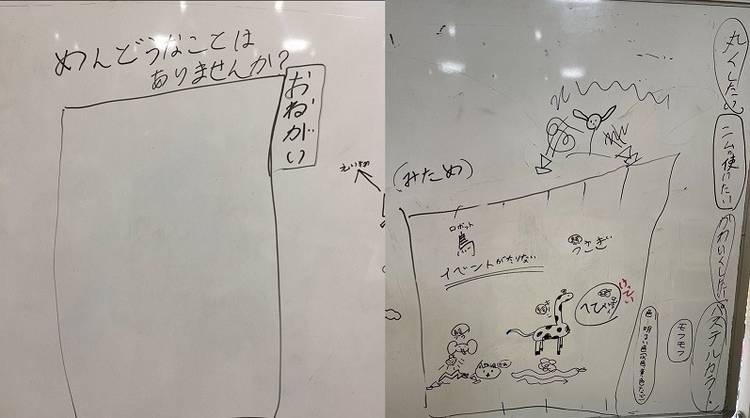 めんどうなことは
ありませんか?
おねがい
(みため)
ロボット
鳥
うさぎ
イベントがたりない
へび
けってい
丸くしたい
ニムを使いたい
かわいくしたい
パステルカラー
モフモフ